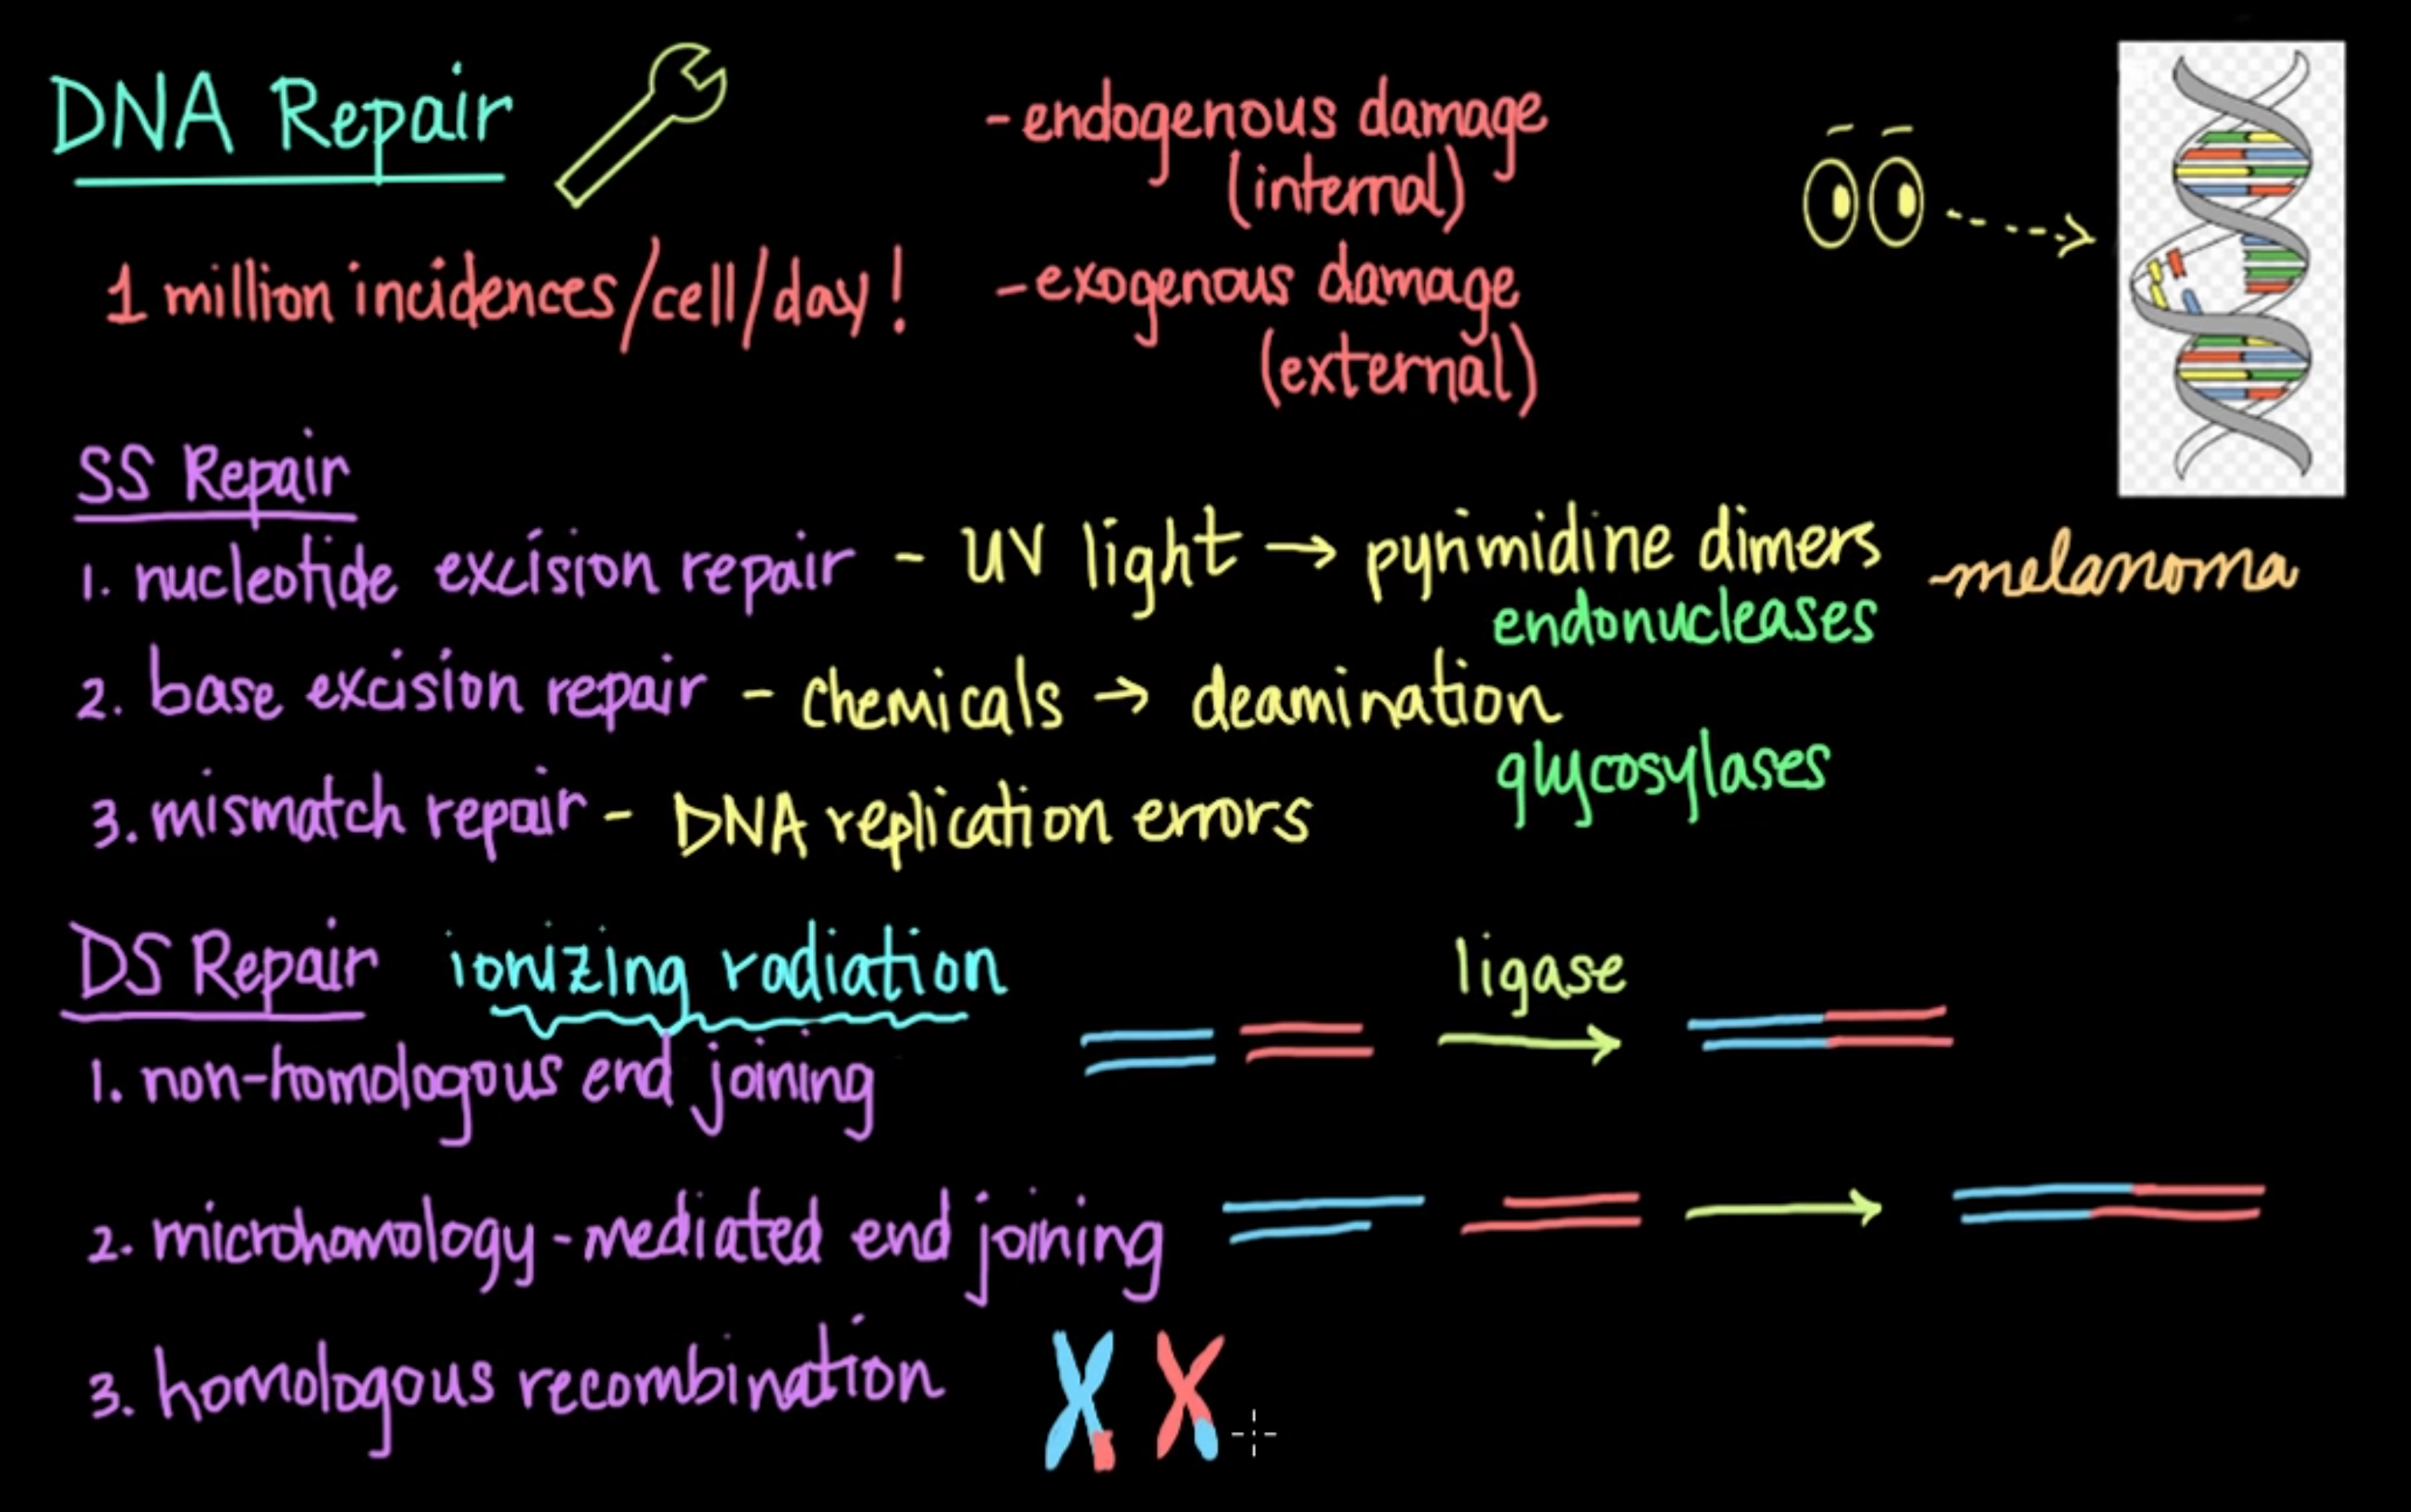 DNA Repair
1 million incidences/cell/day!
- endogenous damage
(internal)
- exogenous damage
(external)
SS Repair
1. nucleotide excision repair - UV light → pyrimidine dimers - melanoma
endonucleases
2. base excision repair - chemicals → deamination
glycosylases
3. mismatch repair - DNA replication errors
DS Repair ionizing radiation
ligase
1. non-homologous end joining
2. microhomology-mediated end joining
3. homologous recombination